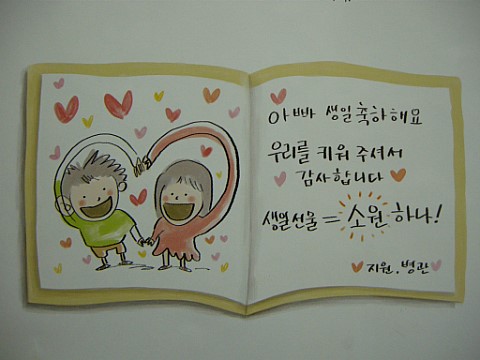 아빠 생일 축하해요
우리를 키워 주셔서
감사합니다
생일선물 = 소원 하나!
지원, 병관